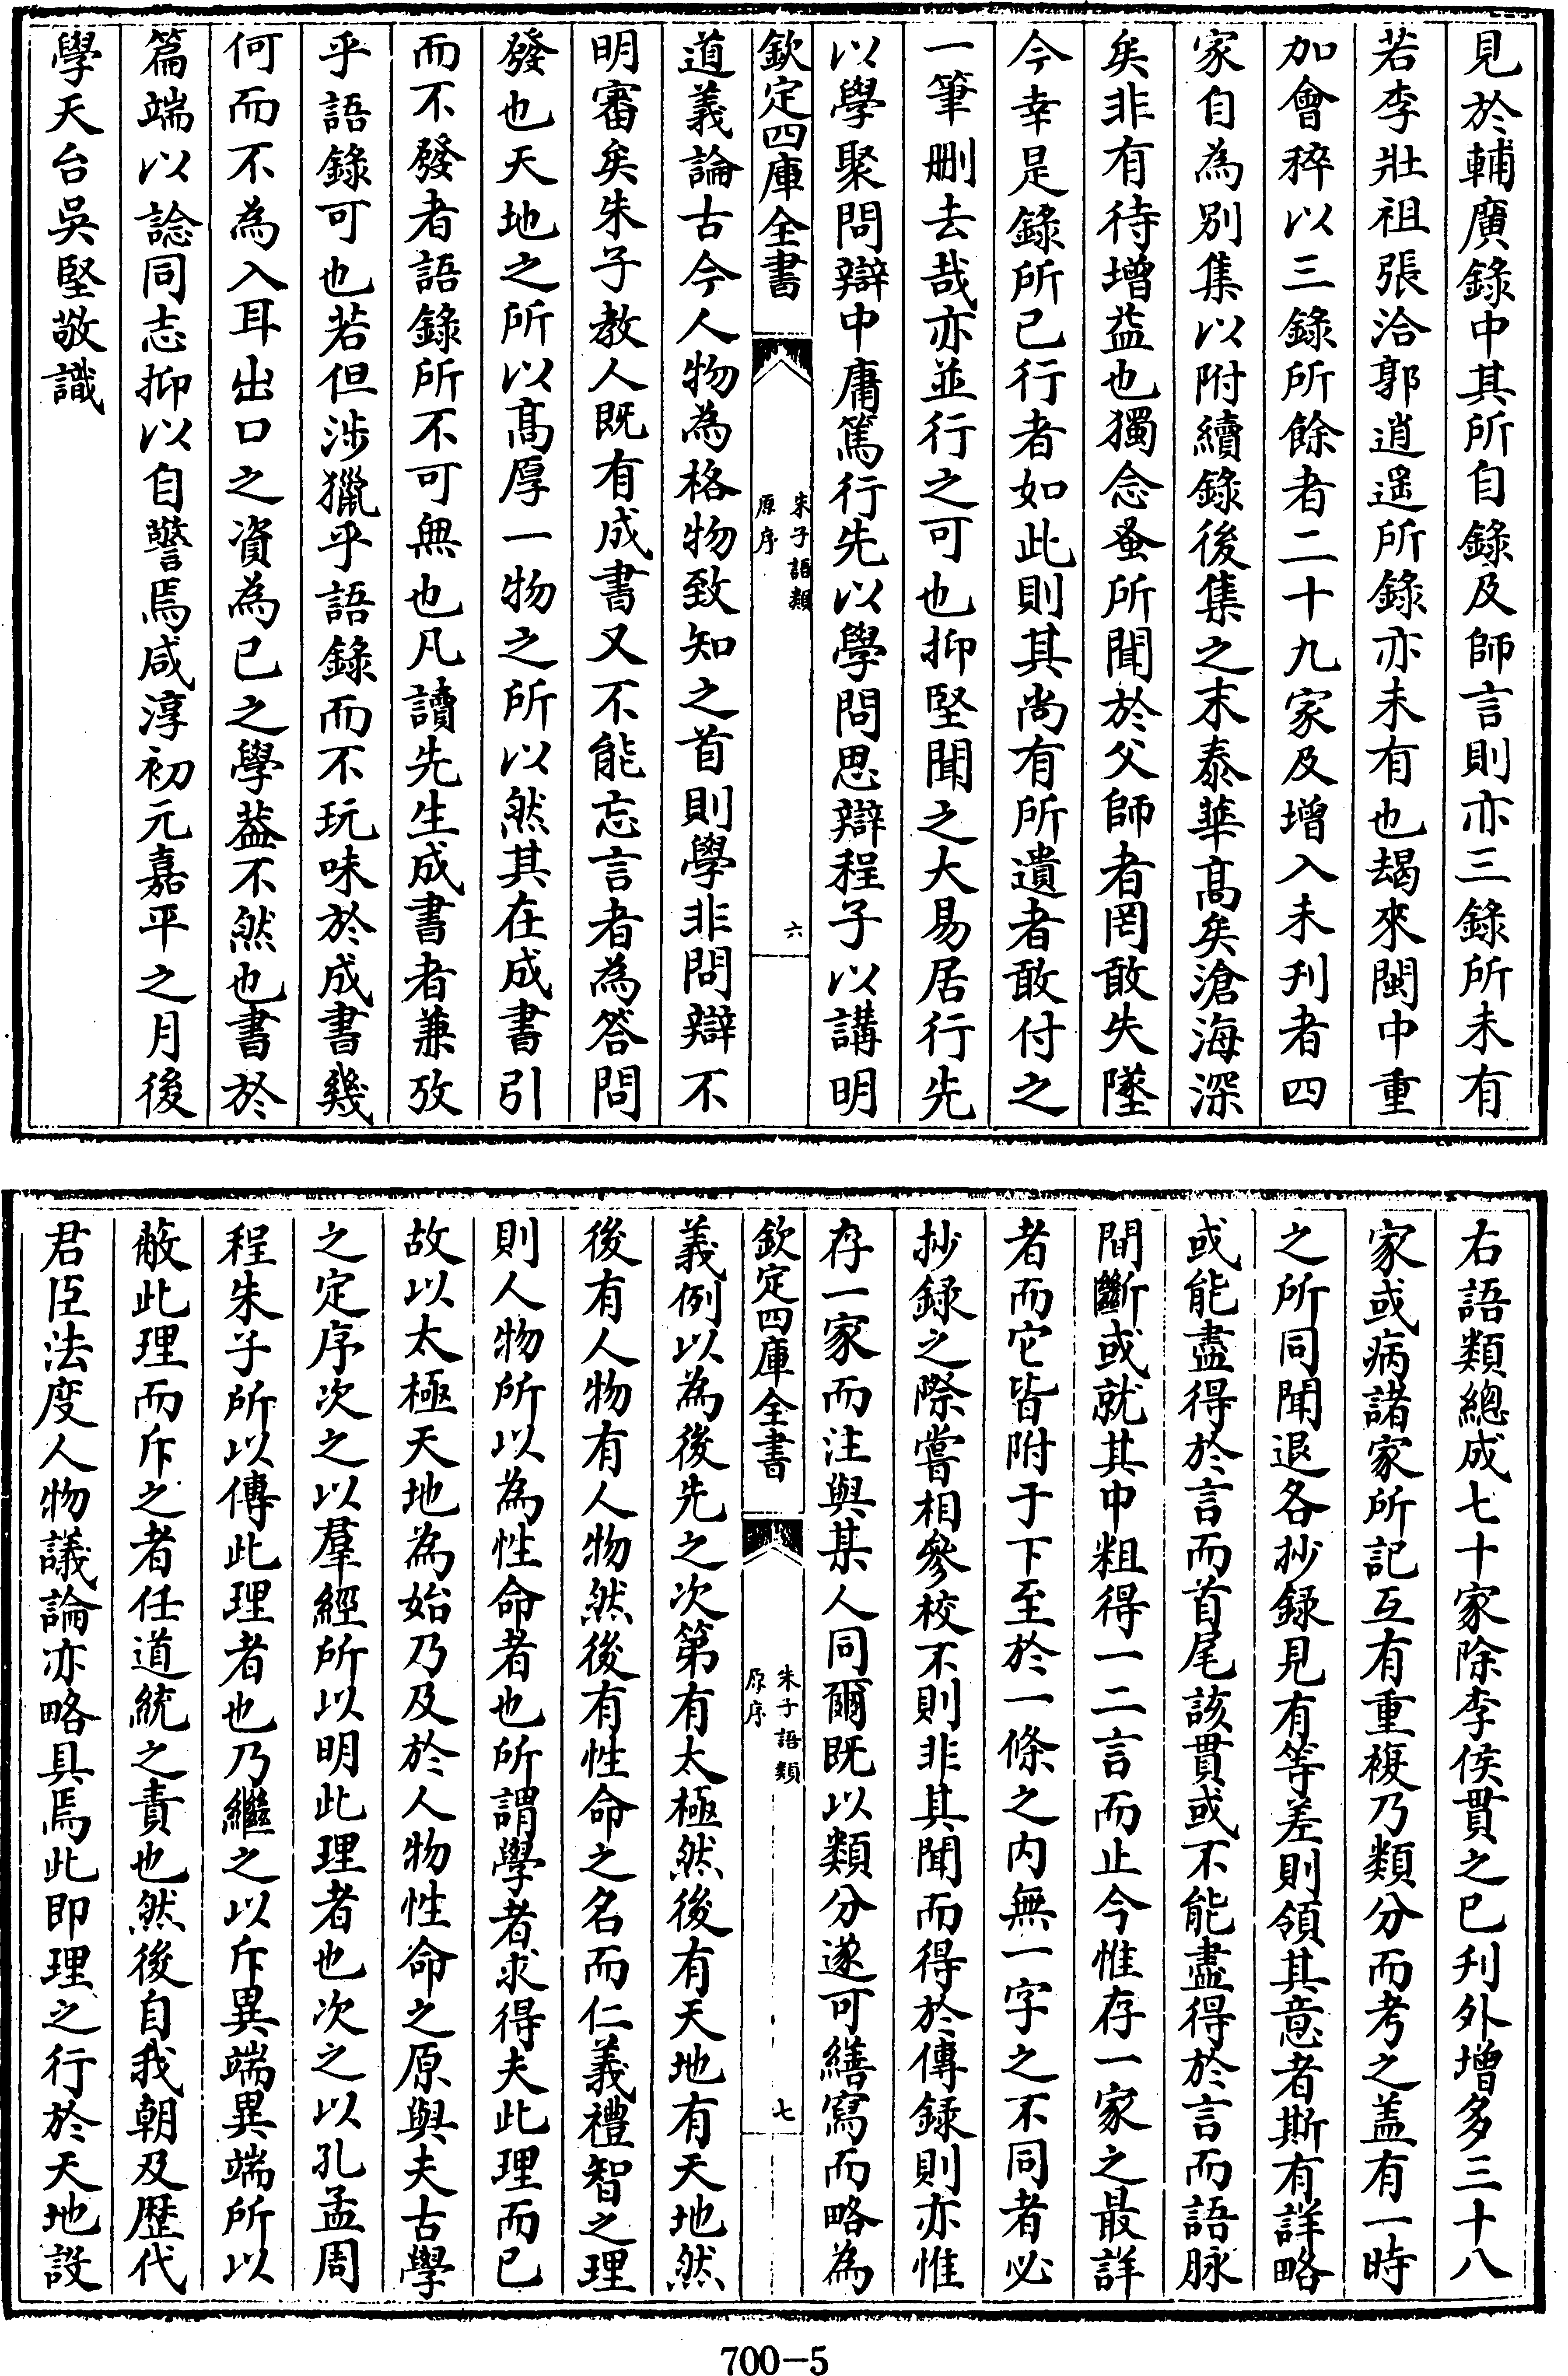 見於輔廣錄中其所自錄及師言則亦三錄所未有
若李壯祖張洽郭逍遥所錄亦未有也朅來閩中重
加會稡以三錄所餘者二十九家及增入未刋者四
家自為别集以附續錄後集之末泰華髙矣滄海深
矣非有待增益也獨念蚤所聞於父師者罔敢失墜
今幸是錄所已行者如此則其尚有所遺者敢付之
一筆刪去哉亦並行之可也抑堅聞之大易居行先
以學聚問辯中庸篤行先以學問思辯程子以講明
欽定四庫全書
朱子語類
原序
六
道義論古今人物為格物致知之首則學非問辯不
明審矣朱子教人既有成書又不能忘言者為答問
發也天地之所以髙厚一物之所以然其在成書引
而不發者語錄所不可無也凡讀先生成書者兼攷
乎語錄可也若但涉獵乎語錄而不玩味於成書幾
何而不為入耳出口之資為己之學葢不然也書於
篇端以諗同志抑以自警焉咸淳初元嘉平之月後
學天台吳堅敬識
右語類總成七十家除李侯貫之已刋外增多三十八
家或病諸家所記互有重複乃類分而考之盖有一時
之所同聞退各抄録見有等差則領其意者斯有詳略
或能盡得於言而首尾該貫或不能盡得於言而語脉
間斷或就其中粗得一二言而止今惟存一家之最詳
者而它皆附于下至於一條之内無一字之不同者必
抄録之際嘗相參校不則非其聞而得於傳録則亦惟
存一家而注與某人同爾既以類分遂可繕寫而略為
欽定四庫全書
朱子語類
原序
七
義例以為後先之次第有太極然後有天地有天地然
後有人物有人物然後有性命之名而仁義禮智之理
則人物所以為性命者也所謂學者求得夫此理而已
故以太極天地為始乃及於人物性命之原與夫古學
之定序次之以羣經所以明此理者也次之以孔孟周
程朱子所以傳此理者也乃繼之以斥異端異端所以
蔽此理而斥之者任道統之責也然後自我朝及歴代
君臣法度人物議論亦略具焉此即理之行於天地設
700-5